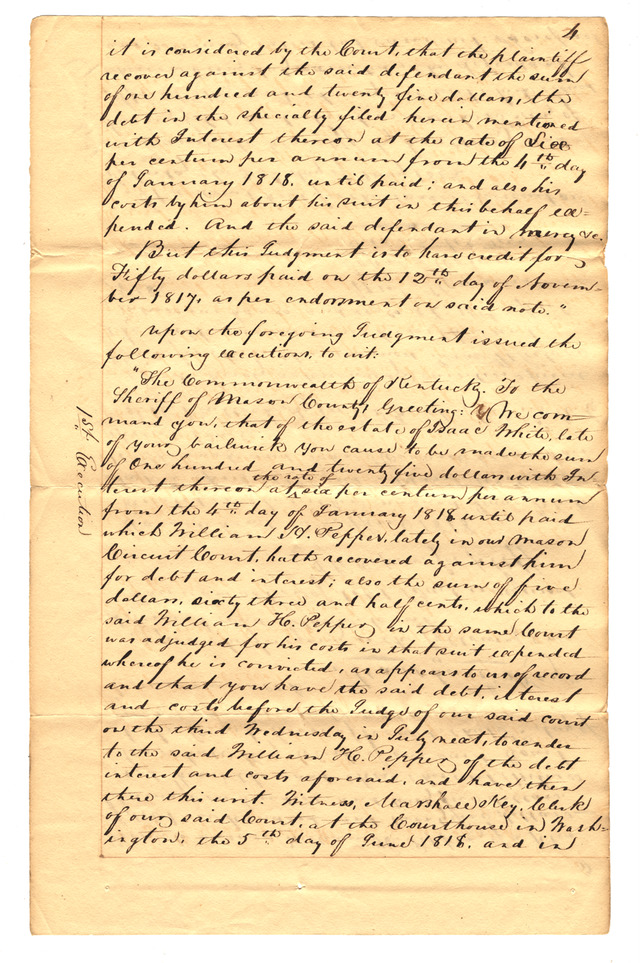 4
it is considered by the Court, that the plaintiff
recover against the said defendant the sum
of one hundred and twenty five dollars, the
debt in the specialty filed herein mentioned
with Interest thereon at the rate of Six
per centum per annum from the 4th day
of January 1818. until paid; and also his
costs by him about his suit in this behalf ex=
pended. And the said defendant in mercy &c.
But this Judgment is to have credit for
Fifty dollars paid on the 12th day of Novem=
ber 1817, as per endorsment on said note."
Upon the foregoing Judgment issued the
following executions, to wit:
"The Commonwealth of Kentucky, To the
Sheriff of Mason County, Greeting: We com=
mand you, that of the estate of Isaac White, late
of your bailiwick you cause to be made the sum
of One hundred and twenty five dollars with In
terest thereon at the rate of six per centum per annum
from the 4th day of January 1818 until paid
which William H. Pepper, lately in our Mason
Circuit Court, hath recovered against him
for debt and interest; also the sum of five
dollars, sixty three and half cents, which to the
said William H. Pepper in the same Court
was adjudged for his costs in that suit expended
whereof he is convicted, as appears to us of record
and that you have the said debt, interest
and costs before the Judge of our said court
on the third Wednesday in July next, to render
to the said William H. Pepper of the debt
interest and costs aforesaid, and have then
there this writ. Witness, Marshall Key, Clerk
of our said Court, at the Courthouse in Wash=
ington, the 5th day of June 1818. and in
1st. Execution